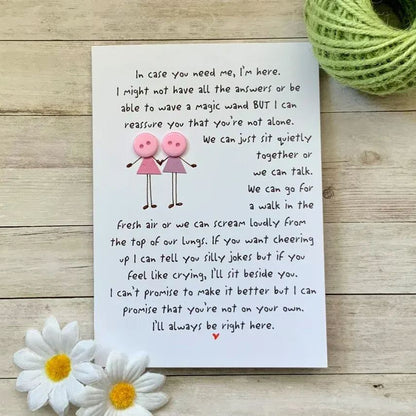 In case you need me, I'm here.
I might not have all the answers or be
able to wave a magic wand BUT I can
reassure you that you're not alone.
We can just sit quietly
together or
we can talk.
We can go for
a walk in the
fresh air or we can scream loudly from
the top of our lungs. If you want cheering
up I can tell you silly jokes but if you
feel like crying, I'll sit beside you.
I can't promise to make it better but I can
promise that you're not on your own.
I'll always be right here.